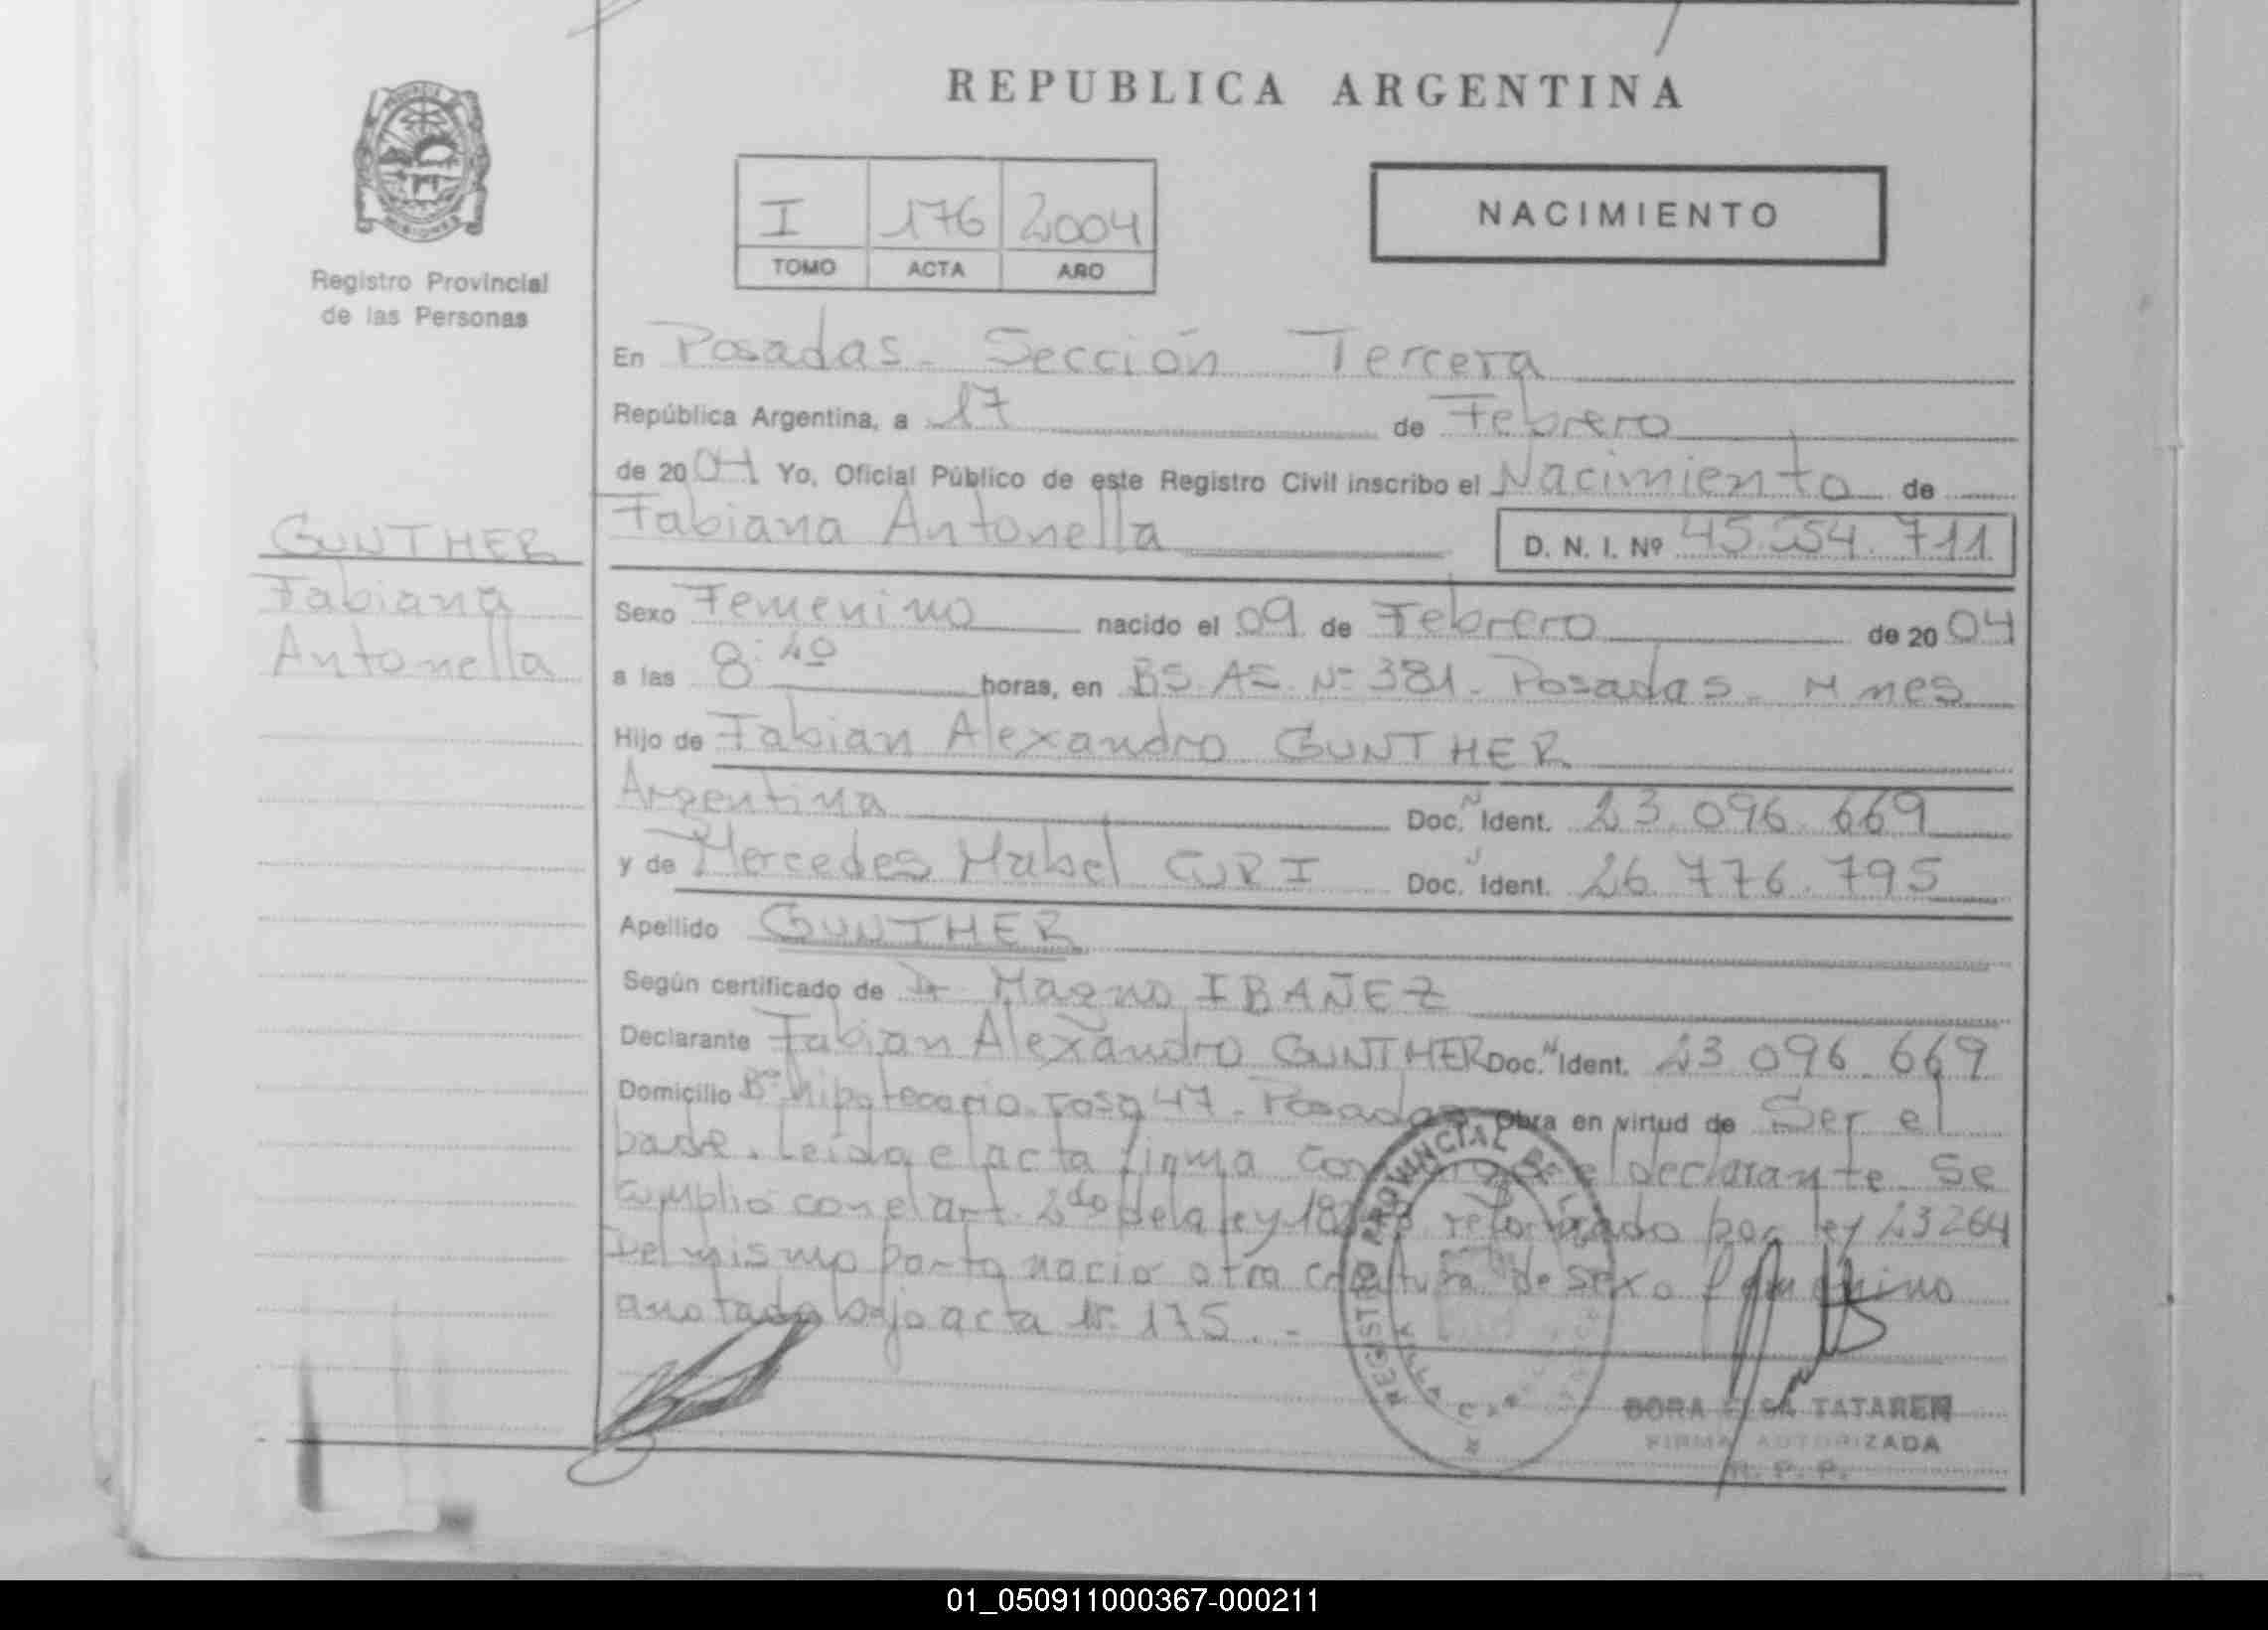 REPUBLICA ARGENTINA
I 176 2004
TOMO ACTA AÑO
NACIMIENTO
MISIONES
Registro Provincial
de las Personas
GUNTHER
Fabiana
Antonella
En Posadas - Sección Tercera
República Argentina, a 17 de Febrero
de 2004 Yo, Oficial Público de este Registro Civil inscribo el Nacimiento de
Fabiana Antonella D. N. I. Nº 45.554.711
Sexo Femenino nacido el 09 de Febrero de 2004
a las 8:40 horas, en BS. AS. Nº 381 - Posadas - Mnes
Hijo de Fabian Alexandro GUNTHER
Argentina Doc. Ident. 23.096.669
y de Mercedes Mabel CURI Doc. Ident. 26.776.795
Apellido GUNTHER
Según certificado de Dr Magno IBAÑEZ
Declarante Fabian Alexandro GUNTHER Doc. Ident. 23.096.669
Domicilio Bº Hipotecario. Casa 47 - Posadas Obra en virtud de Ser el
padre. Leída el acta firma el declarante. Se
cumplió con el art. 2do de la ley reformado por ley 23264
Del mismo parto nació otra criatura de sexo femenino
anotada bajo acta Nº 175. -
REGISTRO PROVINCIAL DE
DORA ELSA TATAREN
FIRMA AUTORIZADA
R. P. P.
01_050911000367-000211